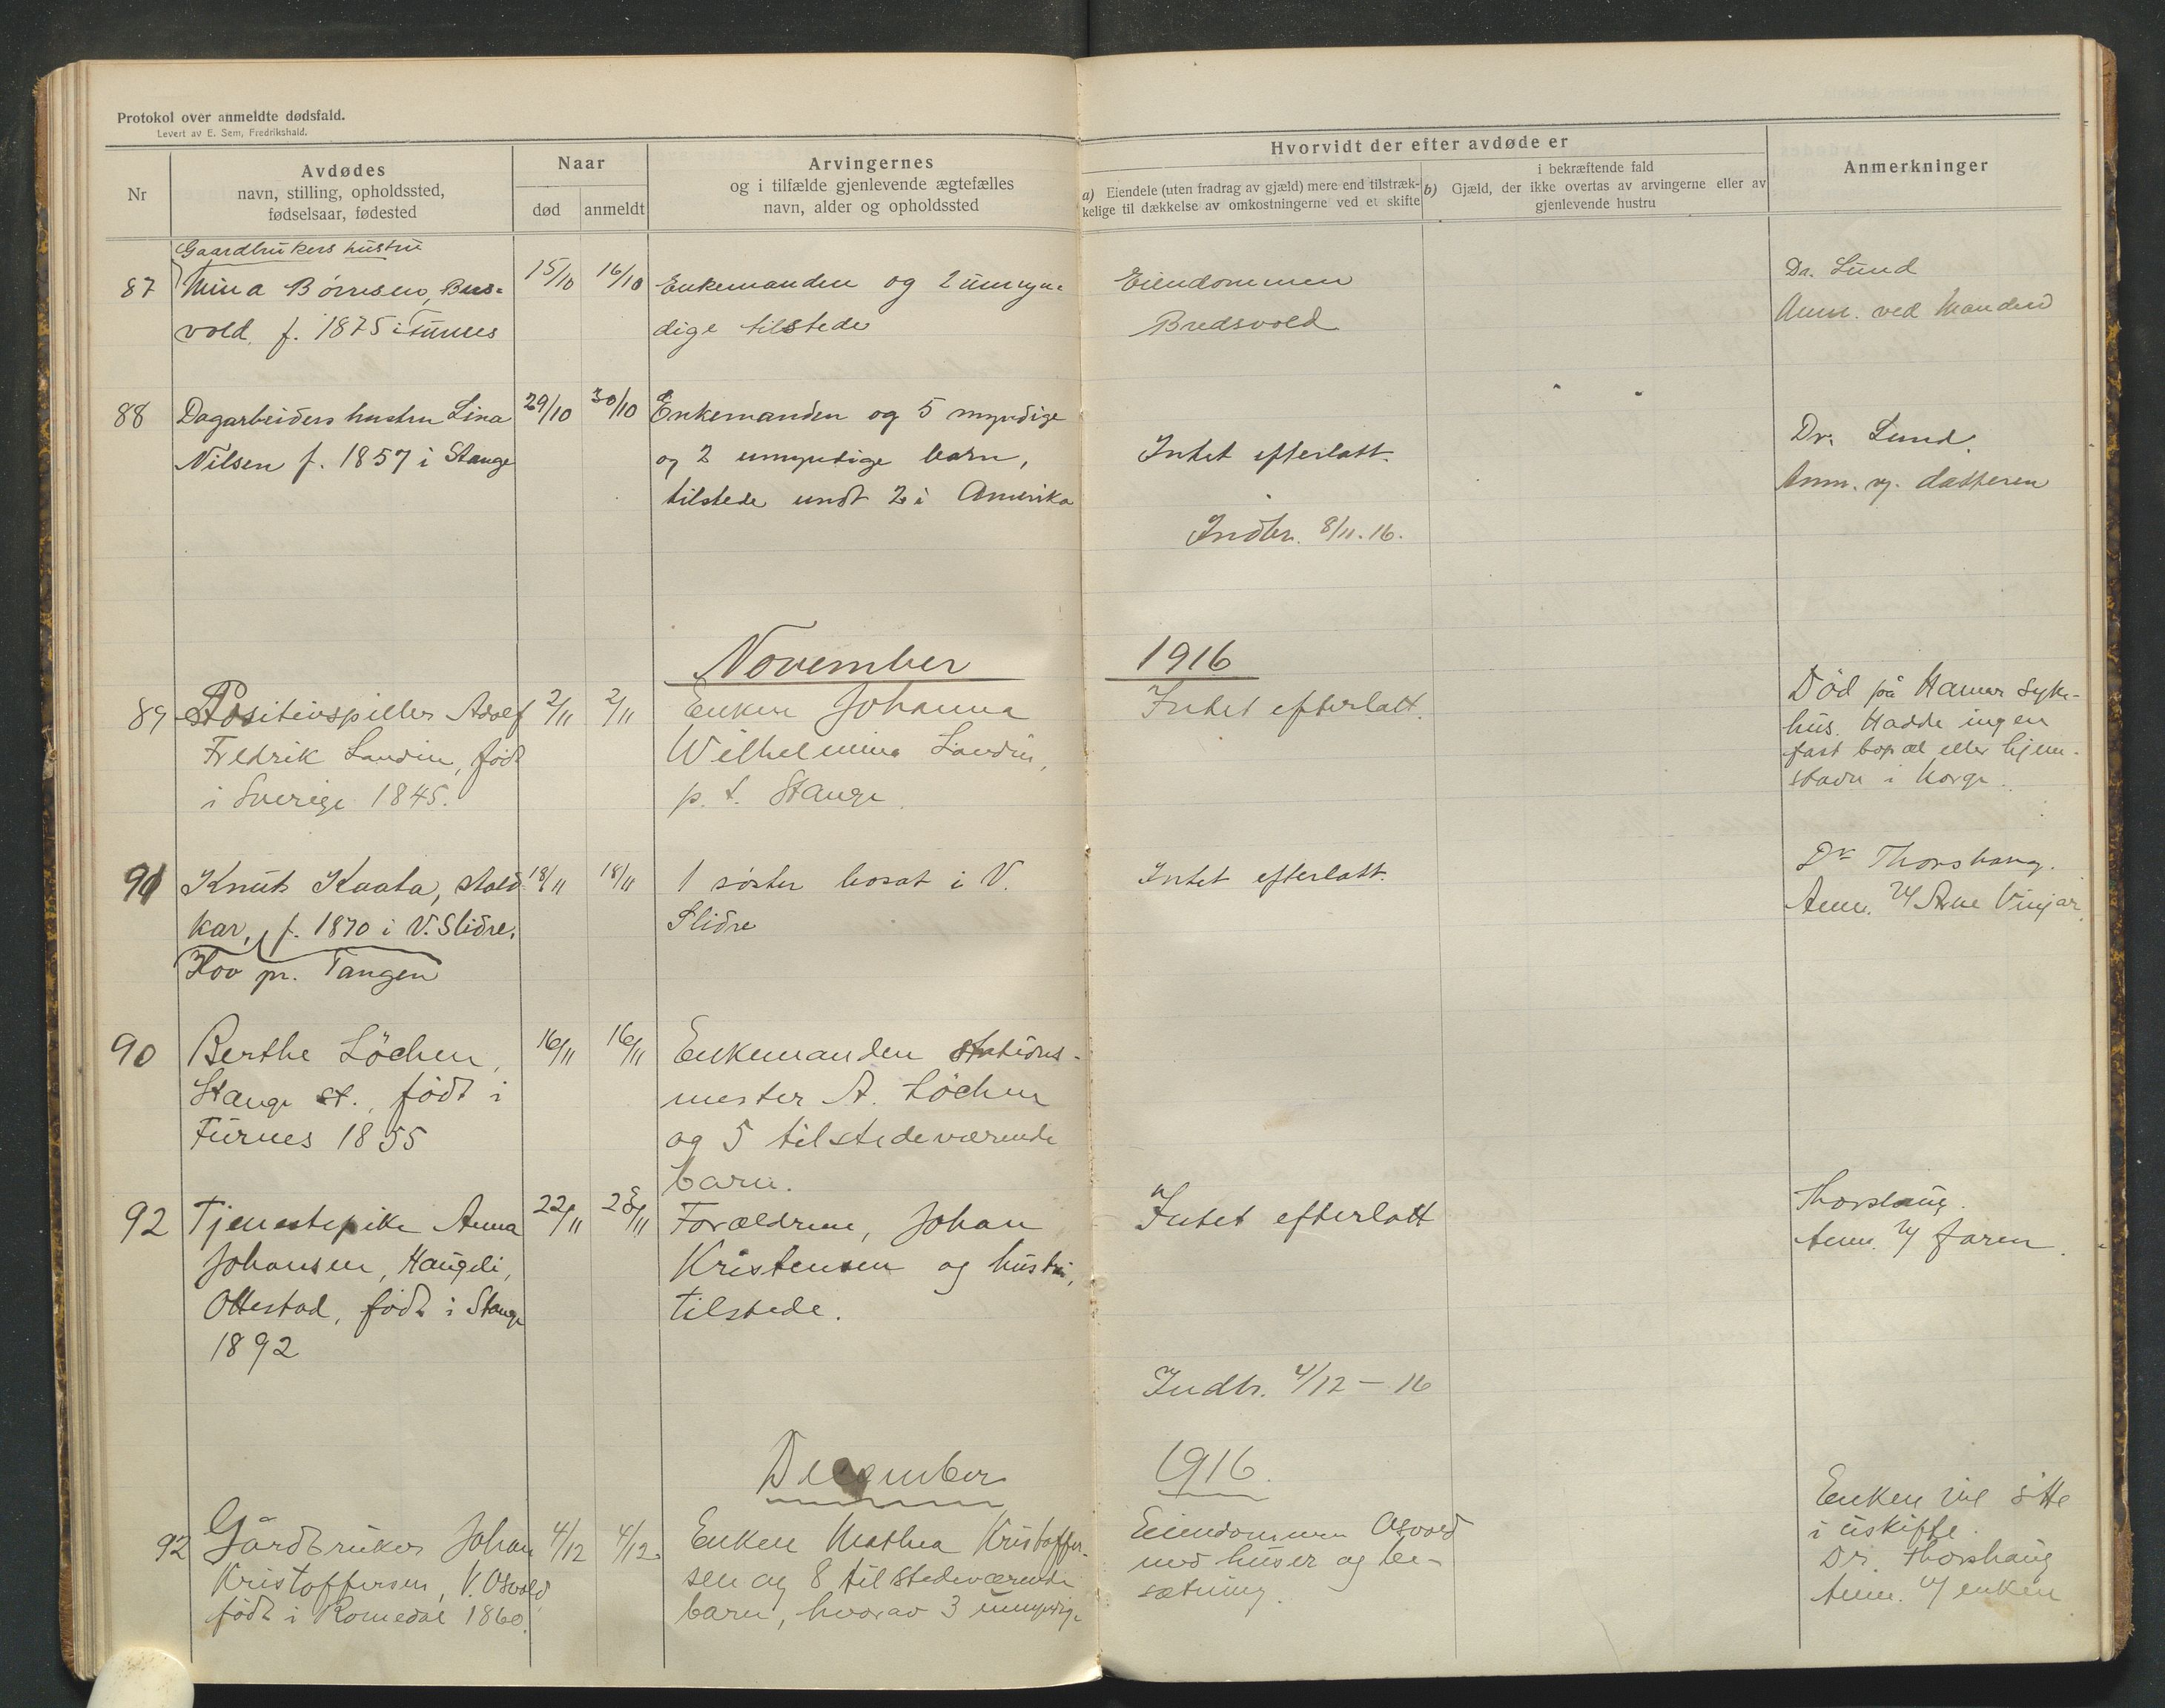 Protokol over anmeldte dødsfald.
Levert av E. Sem, Fredrikshald.
Nr
Avdødes
navn, stilling, opholdssted,
fødselsaar, fødested
Naar
død
anmeldt
Arvingernes
og i tilfælde gjenlevende ægtefælles
navn, alder og opholdssted
Hvorvidt der efter avdøde er
a) Eiendele (uten fradrag av gjæld) mere end tilstræk-
kelige til dækkelse av omkostningerne ved et skifte
i bekræftende fald
b) Gjæld, der ikke overtas av arvingerne eller av
gjenlevende hustru
Anmerkninger
Gaardbrukers hustru
87 Mina Börresen,
vold, f. 1875 i Furnes
15/10 16/10
Enkemanden og 2 umyn-
dige tilstede
Eiendommen
Bredsvold
Dr. Lund
Anm. ved Manden
88 Dagarbeiders hustru Lina
Nilsen f. 1857 i Stange
29/10 30/10
Enkemanden og 5 myndige
og 2 umyndige barn,
tilstede undt 2 i Amerika
Intet efterlatt.
Indb. 8/11. 16.
Dr. Lund.
Anm. v. datteren
November 1916
89 Positivspiller Adolf
Fredrik Landin, födt
i Sverige 1845.
2/11 2/11
Enken Johanna
Wilhelmina Landin,
p. t. Stange.
Intet efterlatt.
Död på Hamar Syke-
hus. Hadde ingen
fast bopæl eller hjem-
stavn i Norge.
91 Knut Kaata, stald
kar, f. 1870 i V. Slidre.
Hov pr. Tangen
18/11 18/11
1 söster bosat i V.
Slidre
Intet efterlatt.
Dr Thorshaug.
Anm. v/ Arne Vinjar.
90 Berthe Löchen,
Stange st., födt i
Furnes 1855
16/11 16/11
Enkemanden stations-
mester A. Löchen
og 5 tilstedeværende
barn.
92 Tjenestepike Anna
Johansen, Haugli,
Ottestad, födt i Stange
1892
22/11 23/11
Forældrene, Johan
Kristensen og hustru,
tilstede.
Intet efterlatt
Thorshaug.
Anm. v/ faren.
Indb. 4/12 - 16
December 1916.
92 Gårdbruker Johan
Kristoffersen, V. Osvold,
födt i Romedal 1860.
4/12 4/12.
Enken Mathea Kristoffer-
sen og 8 tilstedeværende
barn, hvorav 3 umyndige
Eiendommen Osvold
med huser og be-
sætning.
Enken vil sitte
i uskifte.
Dr. Thorshaug
Anm. v/ enken